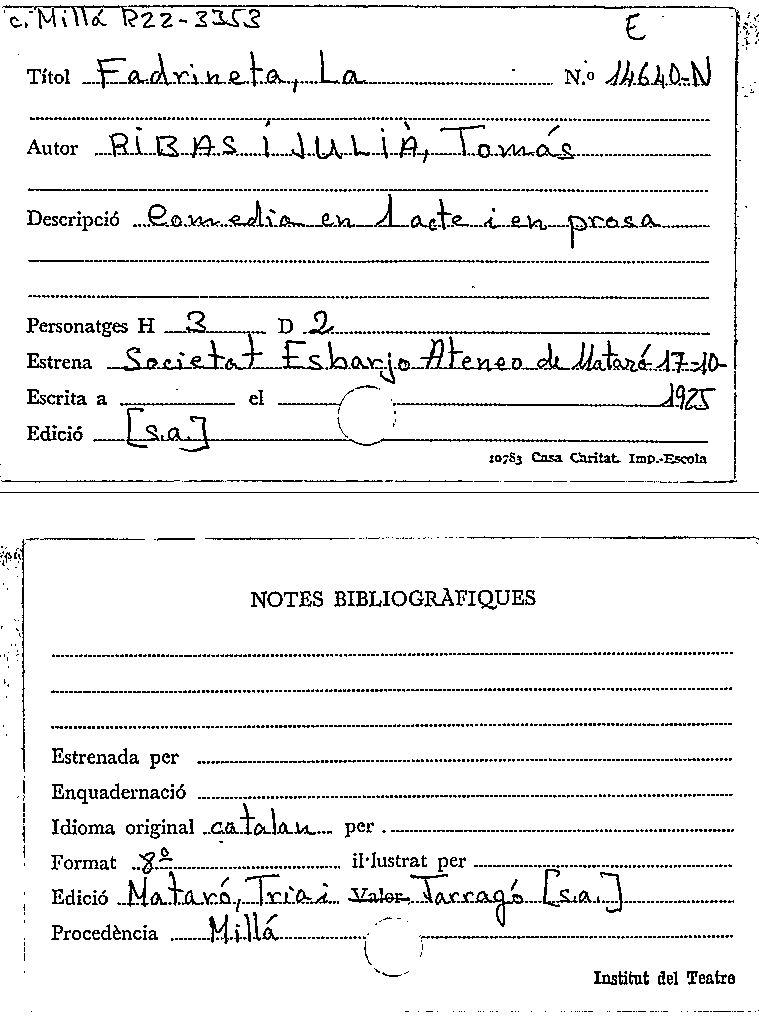 c. Millá R22-3353
E
Títol Fadrineta, La N.º 14640-N
Autor RIBAS I JULIÀ, Tomás
Descripció Comedia en 1 acte i en prosa
Personatges H 3 D 2
Estrena Societat Esbarjo Ateneo de Mataró 17-10-
Escrita a el 1925
Edició [s.a.]
10783 Casa Caritat. Imp.-Escola
NOTES BIBLIOGRÀFIQUES
Estrenada per
Enquadernació
Idioma original catalan per
Format 8º il·lustrat per
Edició Mataró, Tria i Valor Tarragó [s.a.]
Procedència Millá
Institut del Teatre